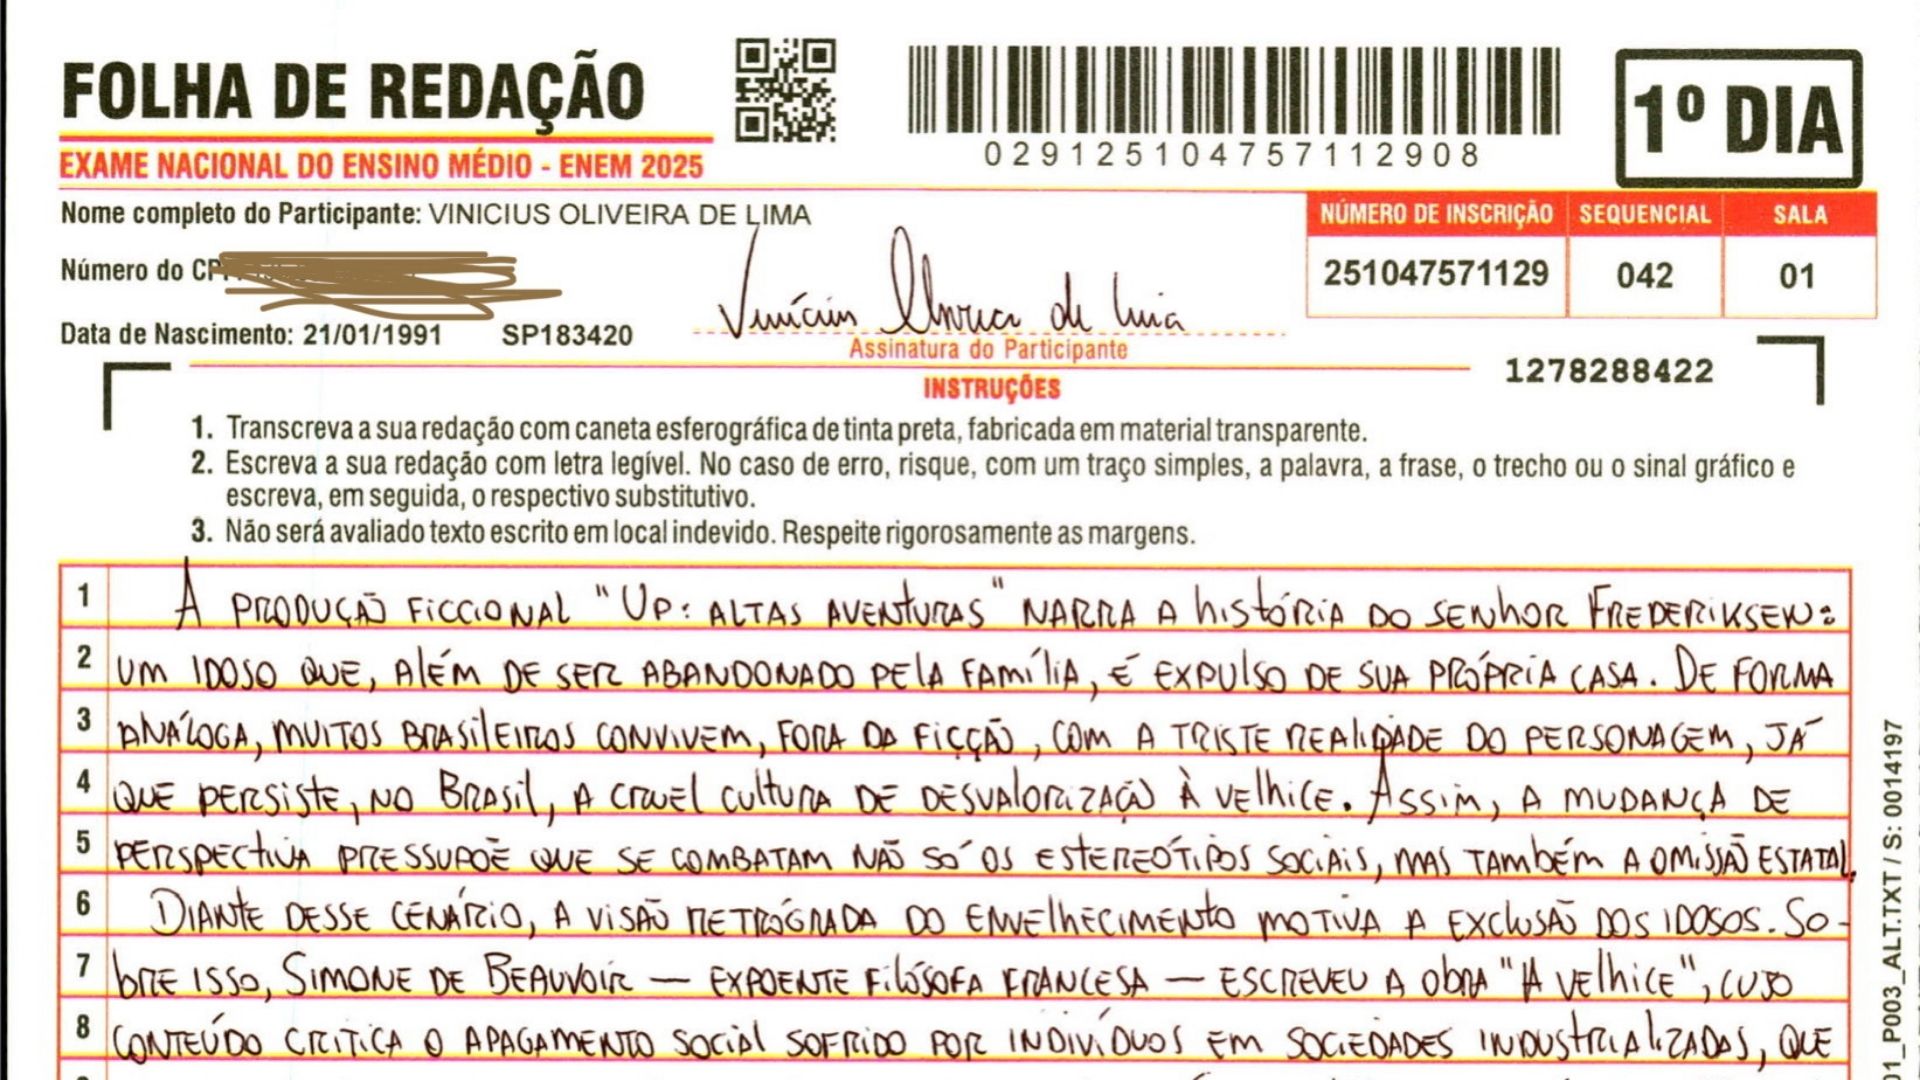 FOLHA DE REDAÇÃO
EXAME NACIONAL DO ENSINO MÉDIO - ENEM 2025
029125104757112908
1º DIA
Nome completo do Participante: VINICIUS OLIVEIRA DE LIMA
NÚMERO DE INSCRIÇÃO SEQUENCIAL SALA
251047571129 042 01
Número do CPF
Vinícius Oliveira de Lima
Data de Nascimento: 21/01/1991 SP183420
Assinatura do Participante
1278288422
INSTRUÇÕES
1. Transcreva a sua redação com caneta esferográfica de tinta preta, fabricada em material transparente.
2. Escreva a sua redação com letra legível. No caso de erro, risque, com um traço simples, a palavra, a frase, o trecho ou o sinal gráfico e
escreva, em seguida, o respectivo substitutivo.
3. Não será avaliado texto escrito em local indevido. Respeite rigorosamente as margens.
1 A PRODUÇÃO FICCIONAL "UP: ALTAS AVENTURAS" NARRA A história DO SENHOR FREDERIKSEN:
2 UM IDOSO QUE, ALÉM DE SER ABANDONADO PELA FAMÍLIA, É EXPULSO DE SUA PRÓPRIA CASA. DE FORMA
3 ANÁLOGA, MUITOS BRASILEIROS CONVIVEM, FORA DA FICÇÃO, COM A TRISTE REALIDADE DO PERSONAGEM, JÁ
4 QUE PERSISTE, NO BRASIL, A CRUEL CULTURA DE DESVALORIZAÇÃO À VELHICE. ASSIM, A MUDANÇA DE
5 PERSPECTIVA PRESSUPÕE QUE SE COMBATAM NÃO SÓ OS ESTEREÓTIPOS SOCIAIS, MAS TAMBÉM A OMISSÃO ESTATAL.
6 DIANTE DESSE CENÁRIO, A VISÃO RETRÓGRADA DO ENVELHECIMENTO MOTIVA A EXCLUSÃO DOS IDOSOS. SO-
7 BRE ISSO, SIMONE DE BEAUVOIR — EXPOENTE FILÓSOFA FRANCESA — ESCREVEU A OBRA "A VELHICE", CUJO
8 CONTEÚDO CRITICA O APAGAMENTO SOCIAL SOFRIDO POR INDIVÍDUOS EM SOCIEDADES INDUSTRIALIZADAS, QUE
01_P003_ALT.TXT / S: 0014197